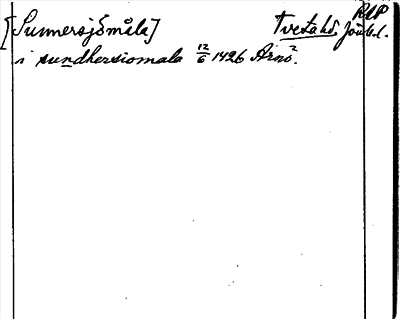 [Sunnersjömåla] Tvetahd. RAP
Jönk.l.
i sundhersiomala 12/6 1426 Arnö².